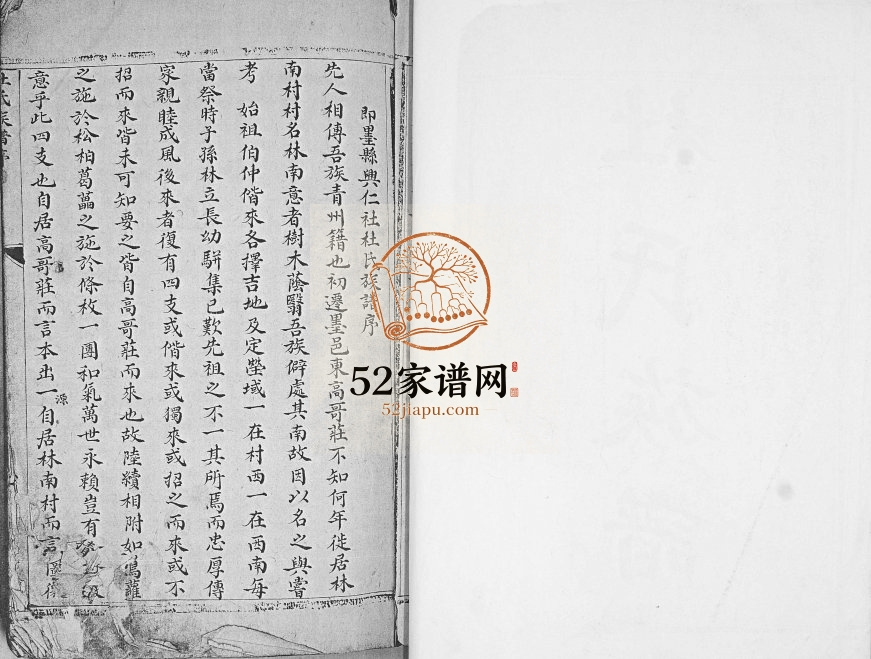 即墨縣興仁社杜氏族譜序
先人相傳吾族青州籍也初遷墨邑東高哥莊不知何年徙居林
南村村名林南意者樹木蔭翳吾族僻處其南故因以名之與嘗
考 始祖伯仲偕來各擇吉地及定塋域一在村西一在西南每
當祭時子孫林立長幼駢集已歎先祖之不一其所焉而忠厚傳
家親睦成風後來者復有四支或偕來或獨來或招之而來或不
招而來皆未可知要之皆自高哥莊而來也故陸續相附如蔦蘿
之施於松柏葛藟之施於條枚一團和氣萬世永賴豈有
意乎此四支也自居高哥莊而言本出一源自居林南村而言
杜氏族譜序
52家谱网
52jiapu.com